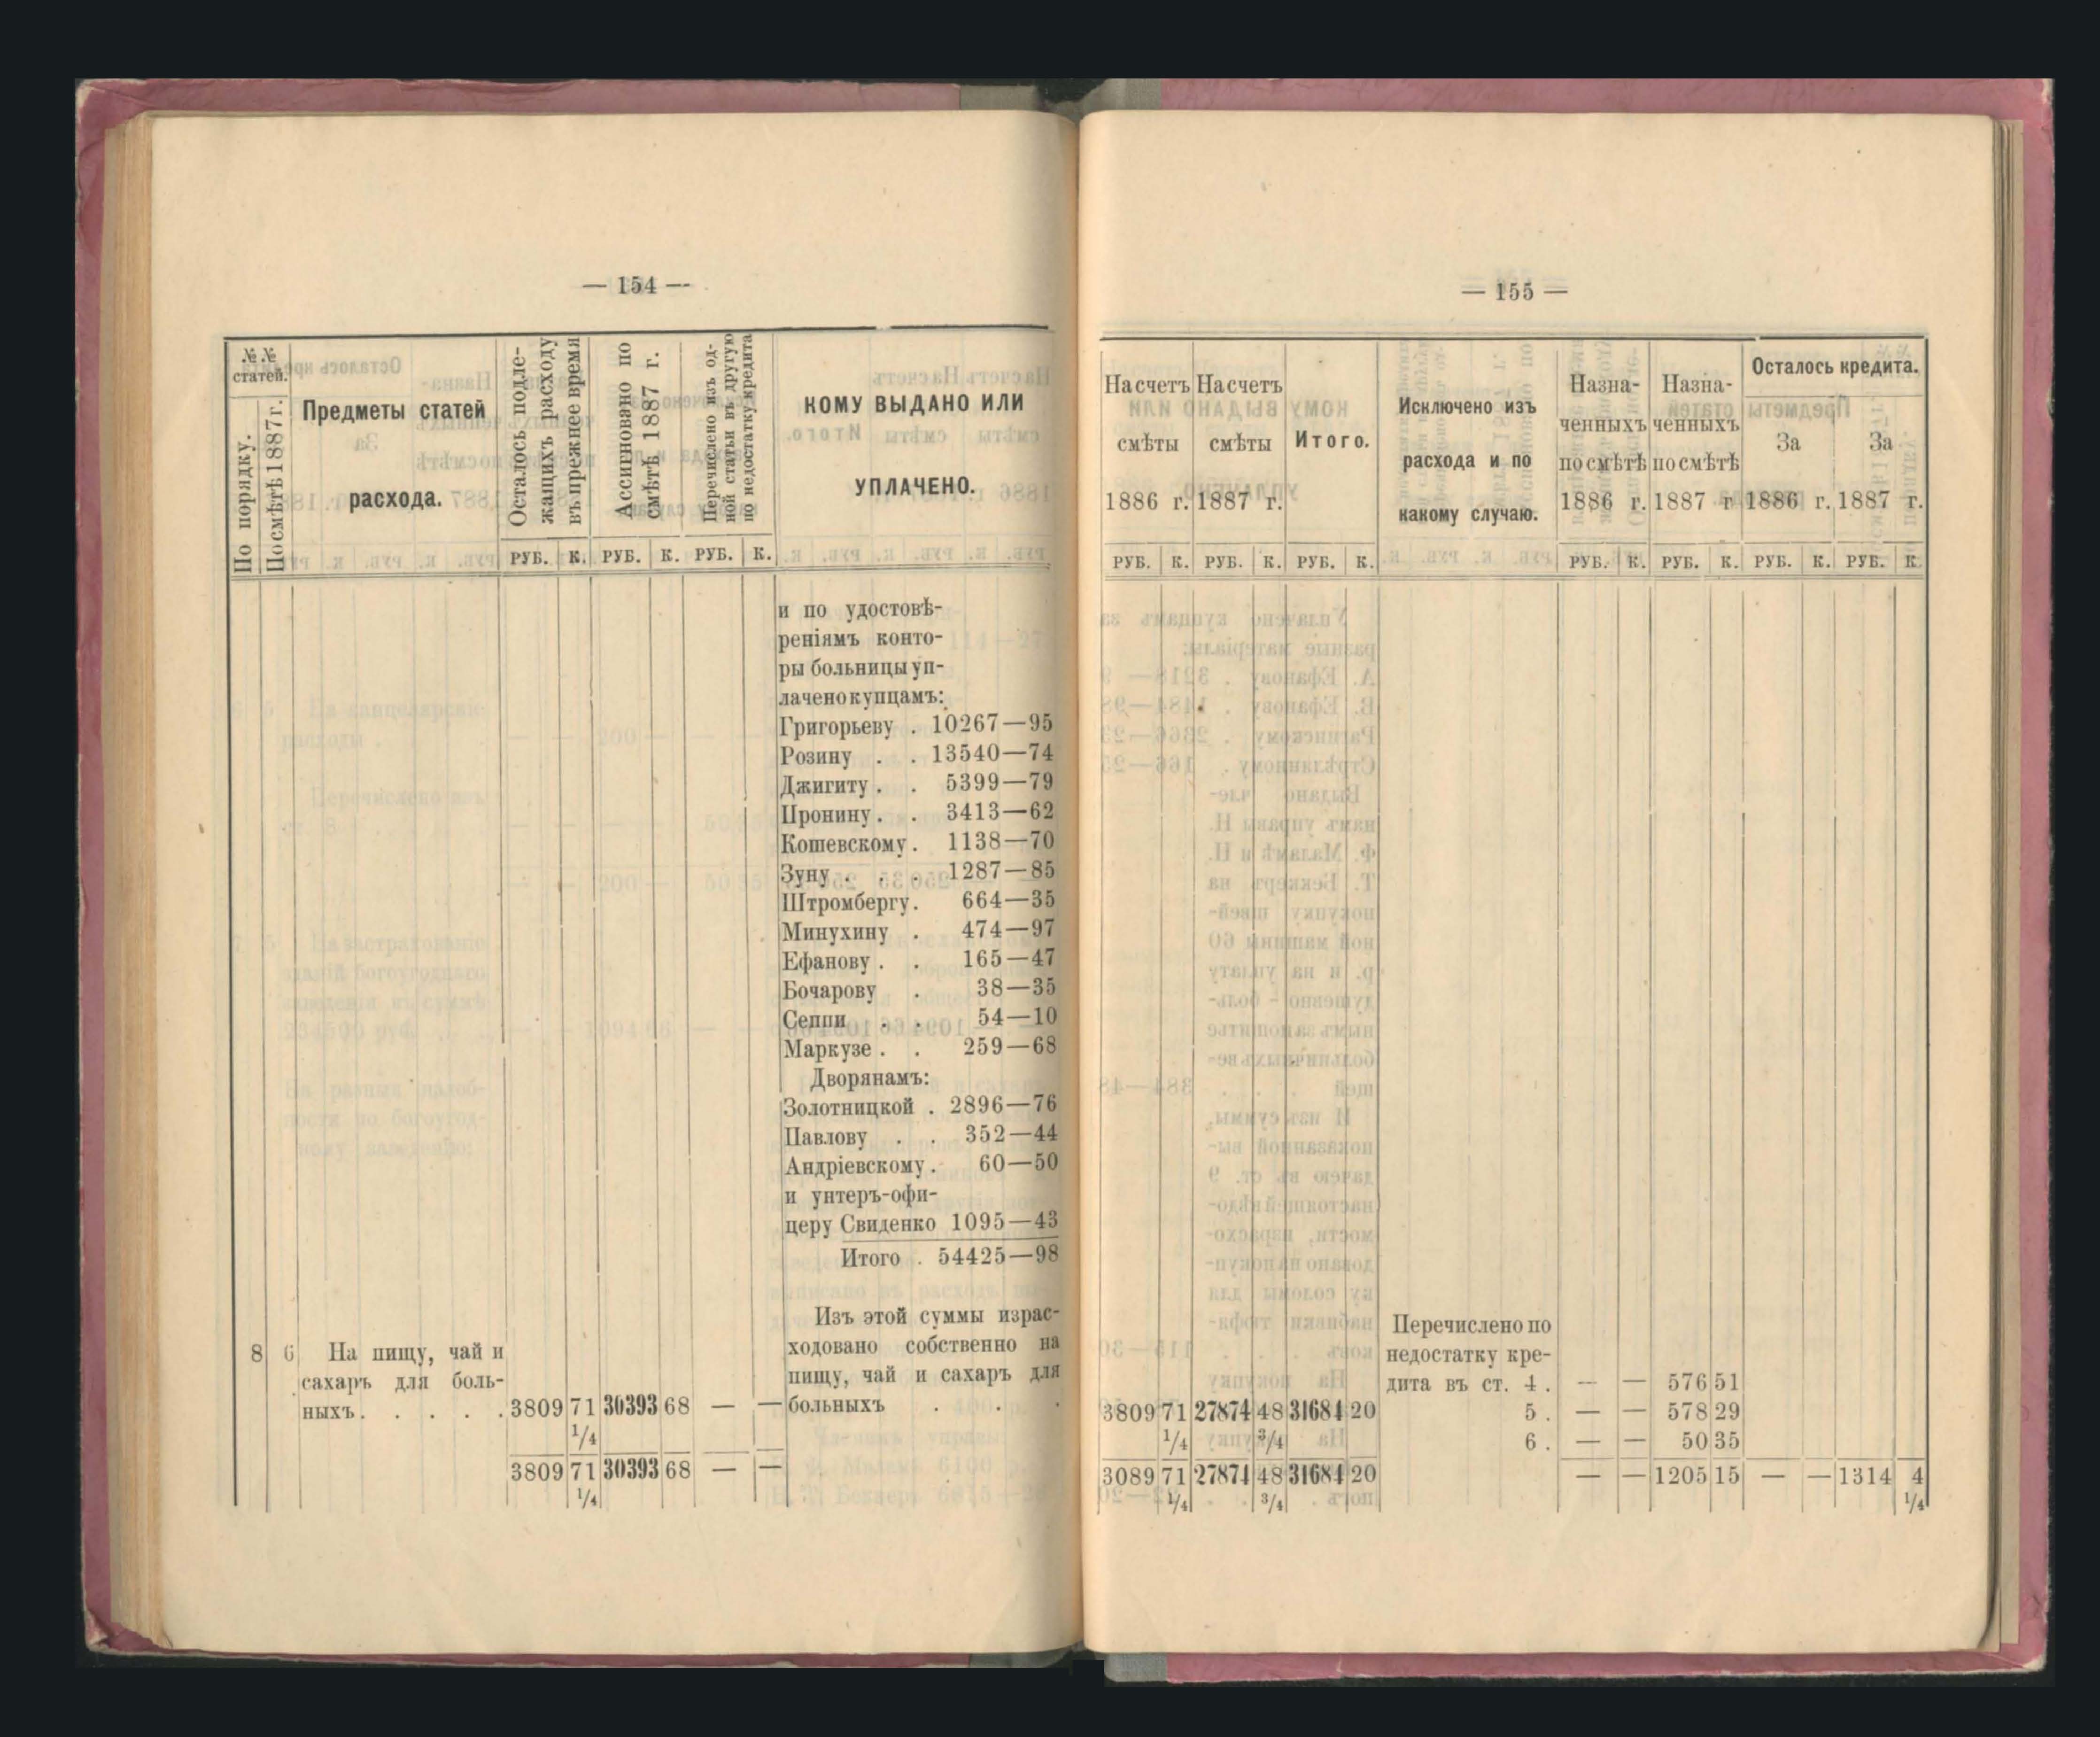 — 154 —
№№ статей.
По порядку.
По смѣтѣ 1887 г.
Предметы статей
расхода.
Осталось подле-
жащихъ расходу
въ прежнее время
Ассигновано по
смѣтѣ 1887 г.
Перечислено изъ од-
ной статьи въ другую
по недостатку кредита
КОМУ ВЫДАНО ИЛИ
УПЛАЧЕНО.
РУБ. К. РУБ. К. РУБ. К.
и по удостовѣ-
реніямъ конто-
ры больницы уп-
лачено купцамъ:
Григорьеву . 10267—95
Розину . . 13540—74
Джигиту . . 5399—79
Пронину . . 3413—62
Кошевскому . 1138—70
Зуну . . . 1287—85
Штромбергу. 664—35
Минухину . 474—97
Ефанову . . 165—47
Бочарову . 38—35
Сеппи . . 54—10
Маркузе . . 259—68
Дворянамъ:
Золотницкой . 2896—76
Павлову . . 352—44
Андріевскому . 60—50
и унтеръ-офи-
церу Свиденко 1095—43
Итого . 54425—98
Изъ этой суммы израс-
ходовано собственно на
пищу, чай и сахаръ для
больныхъ . . .
8 6 На пищу, чай и
сахаръ для боль-
ныхъ . . . . . 3809 71 30393 68 — —
1/4
3809 71 30393 68 — —
1/4
— 155 —
На счетъ
смѣты
1886 г.
На счетъ
смѣты
1887 г.
Итого.
Исключено изъ
расхода и по
какому случаю.
Назна-
ченныхъ
по смѣтѣ
1886 г.
Назна-
ченныхъ
по смѣтѣ
1887 г
Осталось кредита.
За
1886 г.
За
1887 г.
РУБ. К. РУБ. К. РУБ. К. РУБ. К. РУБ. К. РУБ. К. РУБ. К.
Перечислено по
недостатку кре-
дита въ ст. 4 . — — 576 51
3809 71 27874 48 31684 20 5 . — — 578 29
1/4 3/4 6 . — — 50 35
3089 71 27874 48 31684 20 — — 1205 15 — — 1314 4
1/4 3/4 1/4